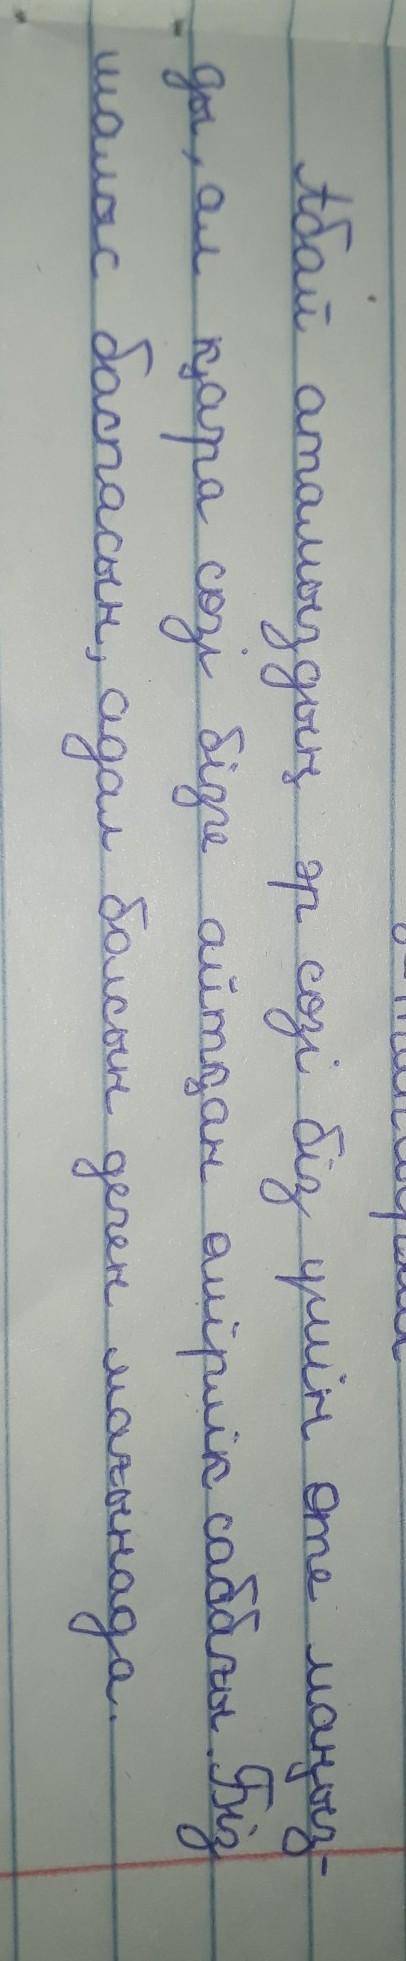 Абай атамыздың әр сөзі біз үшін өте маңыз-
ды, ал қара сөзі бізге айтқан өмірлік сабағы. Біз
шалыс баспасын, адал болсын деген мағынада.